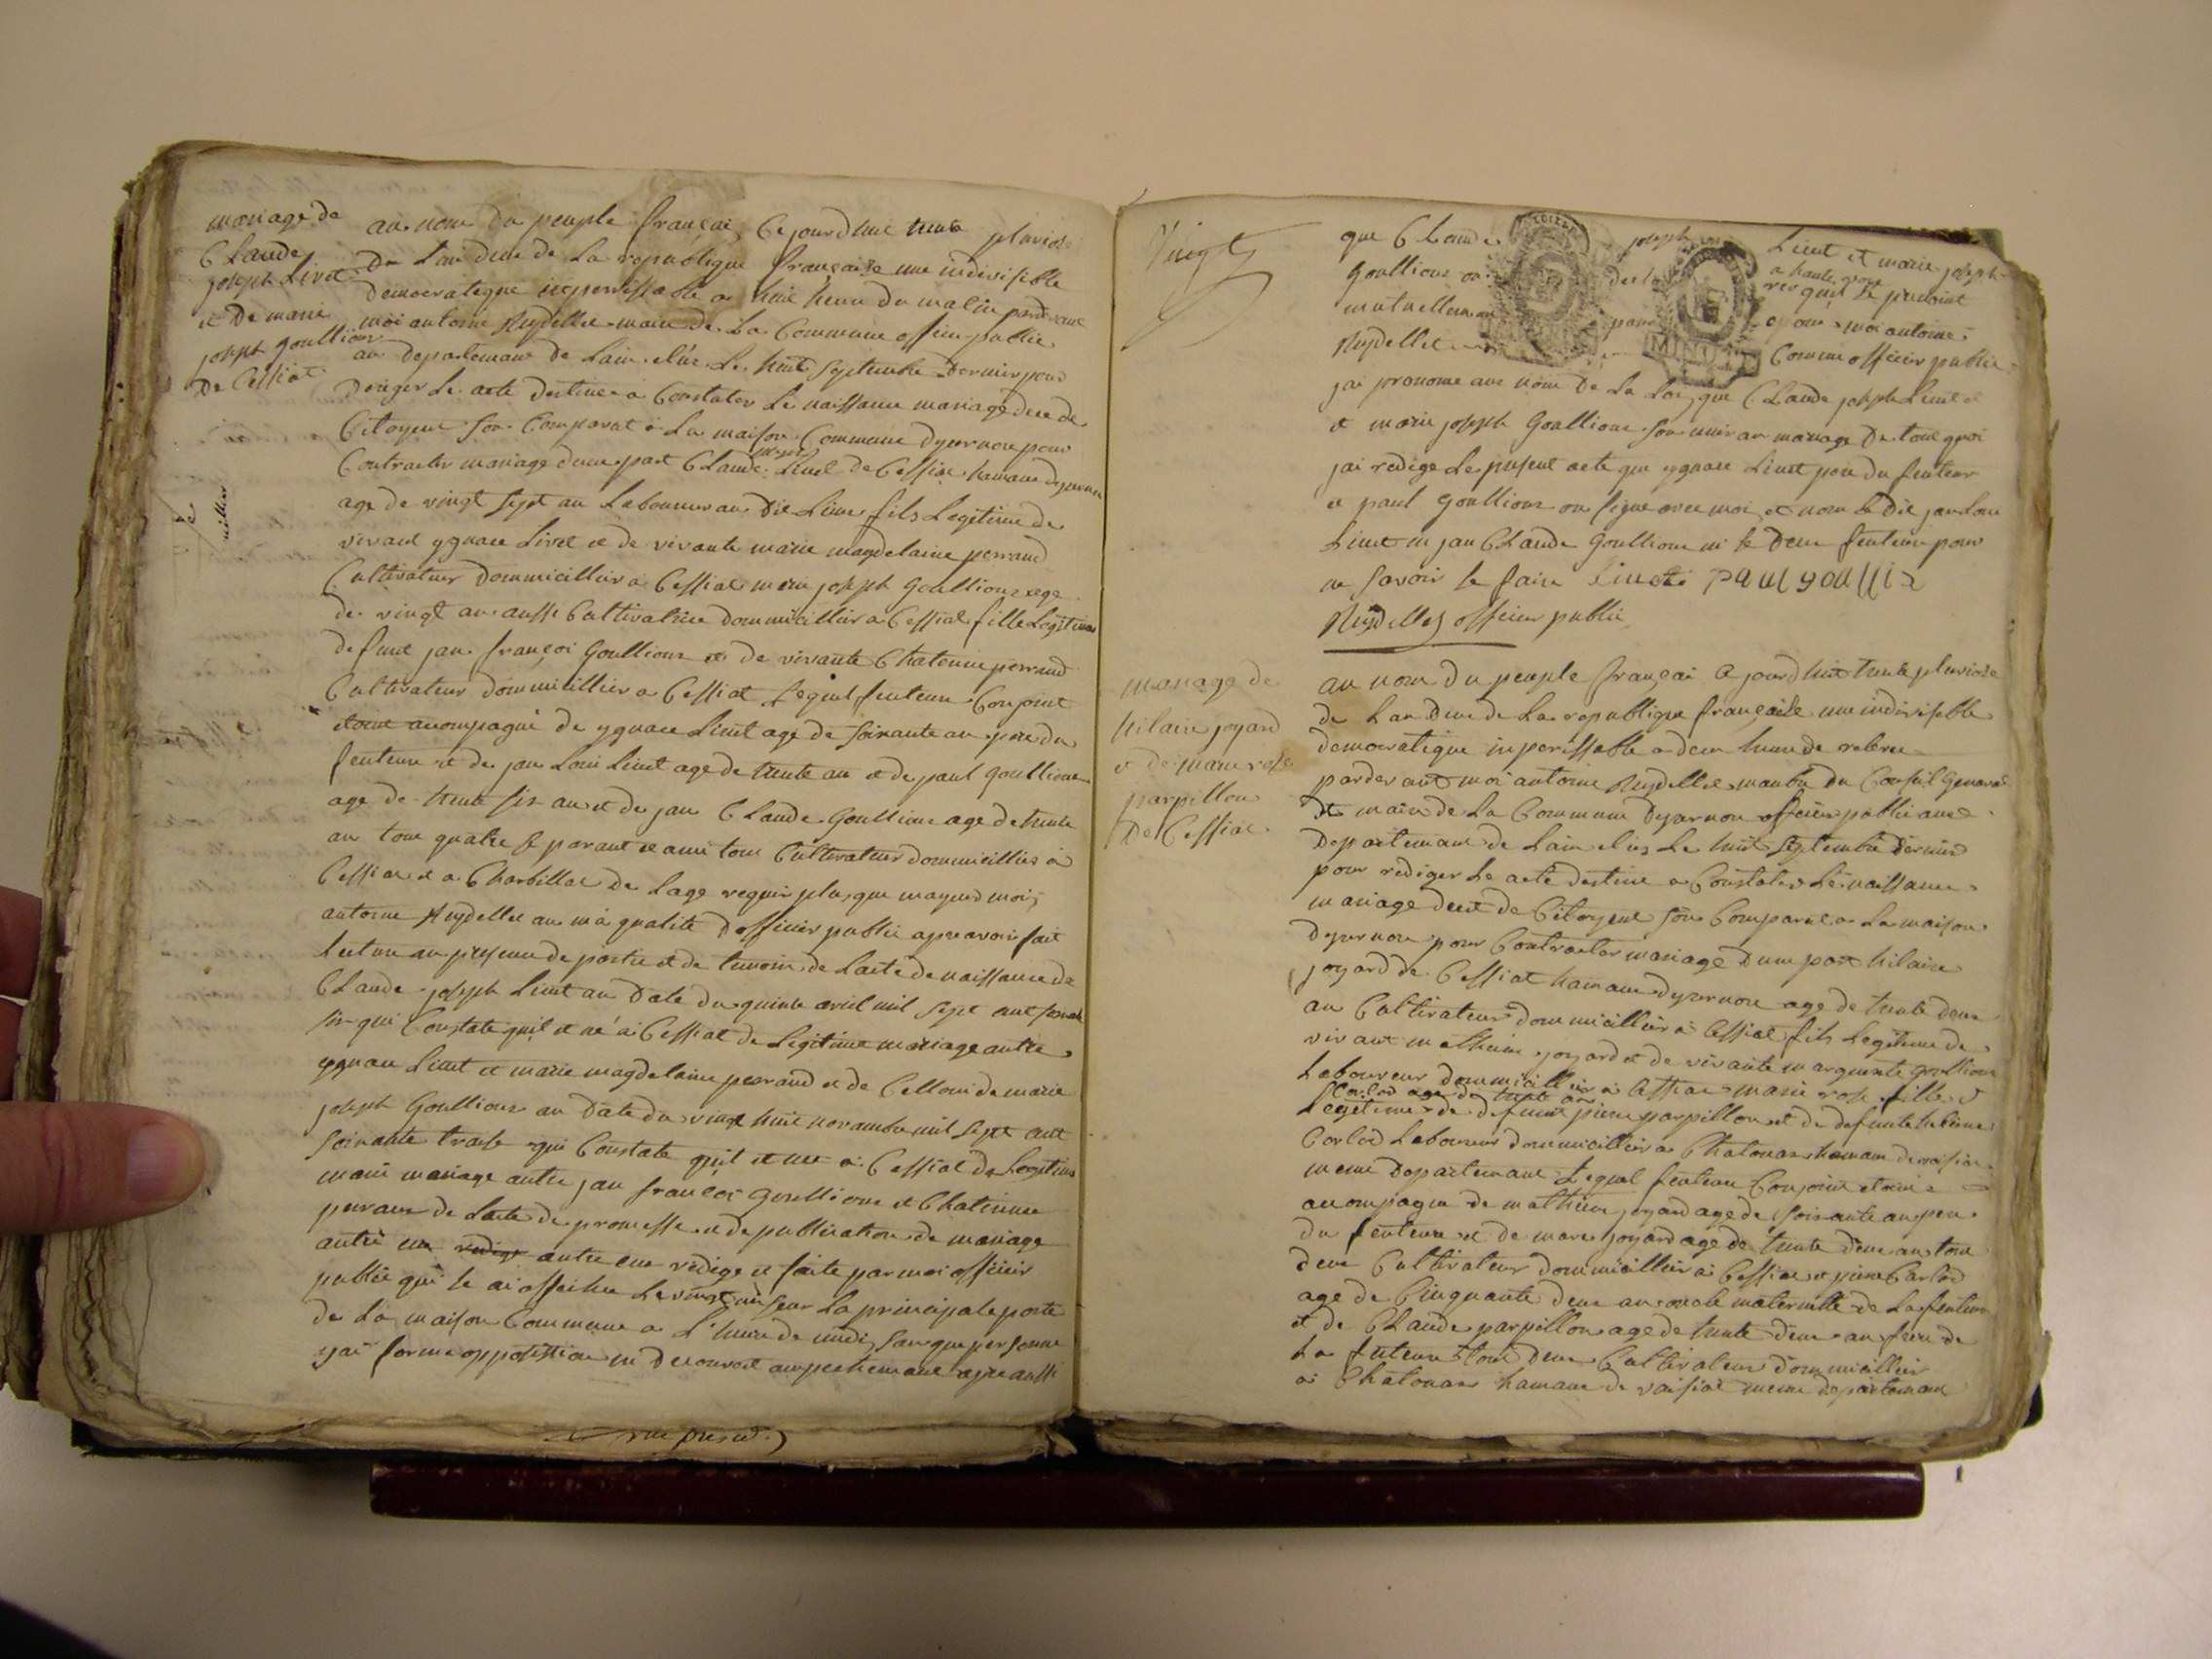 mariage de
Claude
joseph Livet
et De marie
joseph goullion
De Cessiat
au nom du peuple françai Ce jourdhui trente pluviose
De Lan deux de La republique française une indivisible
democratique imperissable a huit heure du matin pardevant
moi antoine Reydellet maire de La Commune officier public
au departemant de Lain elus Le huit septembre Dernier pour
Deriger Le acte destine a Constater Le naissance mariage deces de
Citoyens son Comparut a La maison Commune dyzernore pour
Contracter mariage dune part Claude joseph Livet de Cessiat hamaux dyzernore
age de vingt sept an Laboureur au Dit Lieu fils Legitime de
vivant ygnace Livet et de vivante marie magdelaine perraud
Cultivateur dommicillier a Cessiat marie joseph Goullion age
de vingt an aussi Cultivatrice dommicillier a Cessiat fille Legitime
defunt jan françoi Goullion et de vivante Chaterine perraud
Cultivateur dommicillier a Cessiat Lequel fenteure Conjoint
etoint acompagne de ygnace Livet age de soixante an pere du
fenteure et de jan Loui Livet age de trente an et de paul Goullion
age de trente six an et de jan Claude Goullion age de trente
an tous quatre parant et ami tous Cultivateur dommicillies a
Cessiat et a Charbillat De Lage requis plus que mageur moi
antoine Reydellet au ma qualite dofficier public apre avoir fait
Lecture au presence de partie et de temoin de Lacte de naissance de
Claude joseph Livet au Date du quinze avril mil sept cent soixante
six qui Constate quil et né a Cessiat de Legitime mariage antre
ygnace Livet et marie magdelaine perraud et de Celloui de marie
joseph Goullion au Date du vingt huit novambre mil sept cent
soixante treise qui Constate quil et nee a Cessiat de Legitime
mariage antre jan françoi Goullion et Chaterine
perraud de Lacte de promesse et de publication de mariage
antre eux redige antre eux redige et faite par moi officier
public qui Le ai affichee Le vingt un seur La principale porte
de La maison Commune a Lheure de midi sanque personne
yai forme oppotistion ni decouvert ampechemant apre aussi
Vingt
que Claude joseph Livet et marie joseph
Goullion on a haute voix
mutuellem requis Le presant
Reydellet pour moi antoine
Comme officier public
jai pronome aux nom de La Loi que Claude joseph Livet
et marie joseph Goullion son unir an mariage De tout quoi
jai redige Le presant acte que ygnace Livet pere du fenteur
et paul Goullion on signe avec moi et non Le Dit jan Loui
Livet ni jan Claude Goullion ni Le Deux fenteure pour
ne savoir Le faire Livet paul goullix
Reydellet officier public
mariage de
hilaire joyard
et de marie rose
parpillon
De Cessiat
au nom du peuple françai Ce jourdhui trente pluviose
de Lan Deux de La republique française une indivisible
democratique inperissable a deux heure de relevee
pardevant moi antoine Reydellet manbre du Conseil General
et maire de La Commune dyzernore officier public au
Departemant de Lain elus Le huit septembre dernier
pour rediger Le acte destine a Constater Le naissance
mariage deces de Citoyens son Comparut a La maison
dyzernore pour Contracter mariage dune part hilaire
joyard de Cessiat hamaux dyzernore age de trente deux
an Cultivateur dommicillier a Cessiat fils Legitime de
vivant mathieu joyard et de vivante marguerite goullion
Laboureur dommicillier a Cessiat marie rose fille
Legitime de defunt pierre parpillon et de defunte
Carlod Laboureur dommicillier a Chatonax hamaux de
meme Departemant Lequel fenteure Conjoint etoint
acompagne de mathieu joyard age de soixante an pere
du fenteure et de marie joyard age de trente deux an tous
deux Cultivateur dommicillier a Cessiat et pierre Carlod
age de Cinquante deux an oncle maternelle de La fenteure
et de Claude parpillon age de trente deux an frere de
La fenteure tous deux Cultivateur dommicillier
a Chatonax hamaux de meme departemant